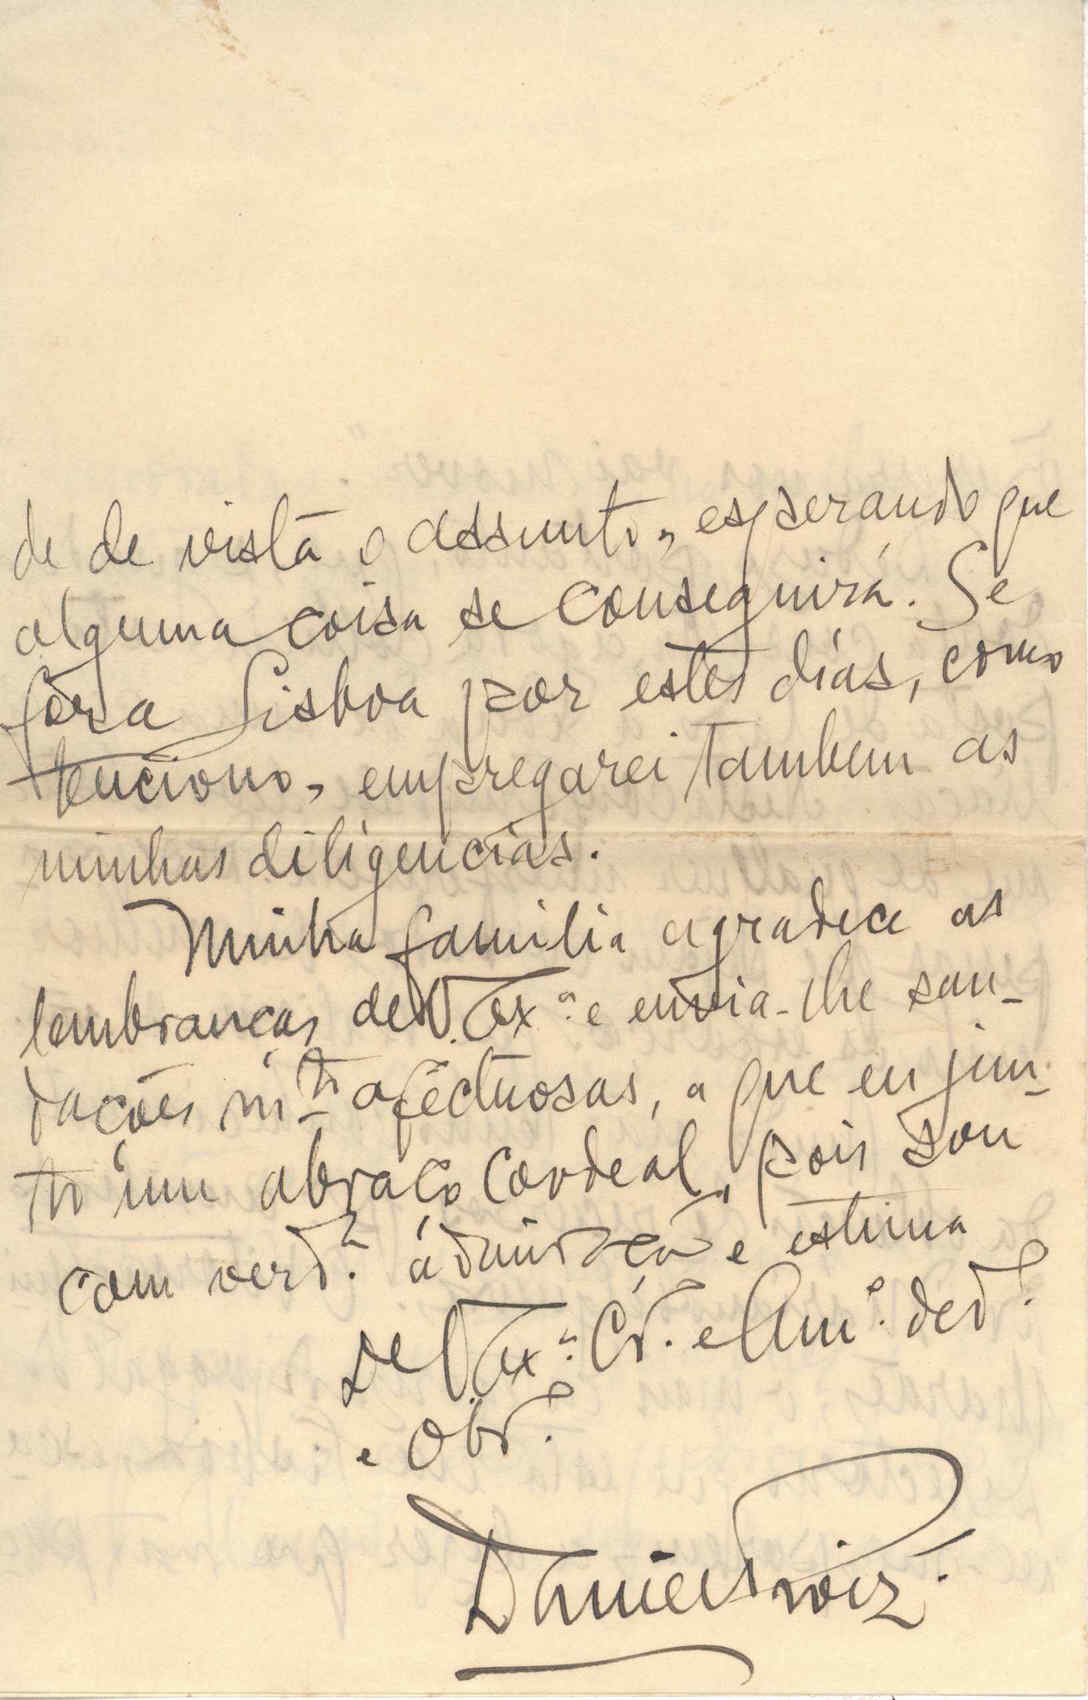 de de vista o assunto, esperando que
alguma coisa se conseguirá. Se
fôr a Lisboa por estes dias, como
tenciono, empregarei tambem as
minhas diligencias.
Minha familia agradece as
lembranças de V. Exª e envia-lhe sau-
dações mtº afectuosas, a que eu jun-
to um abraço cordeal, pois sou
com verdª admiração e estima
De V. Exª Crº e Amº dedº
e Obrº
Daniel